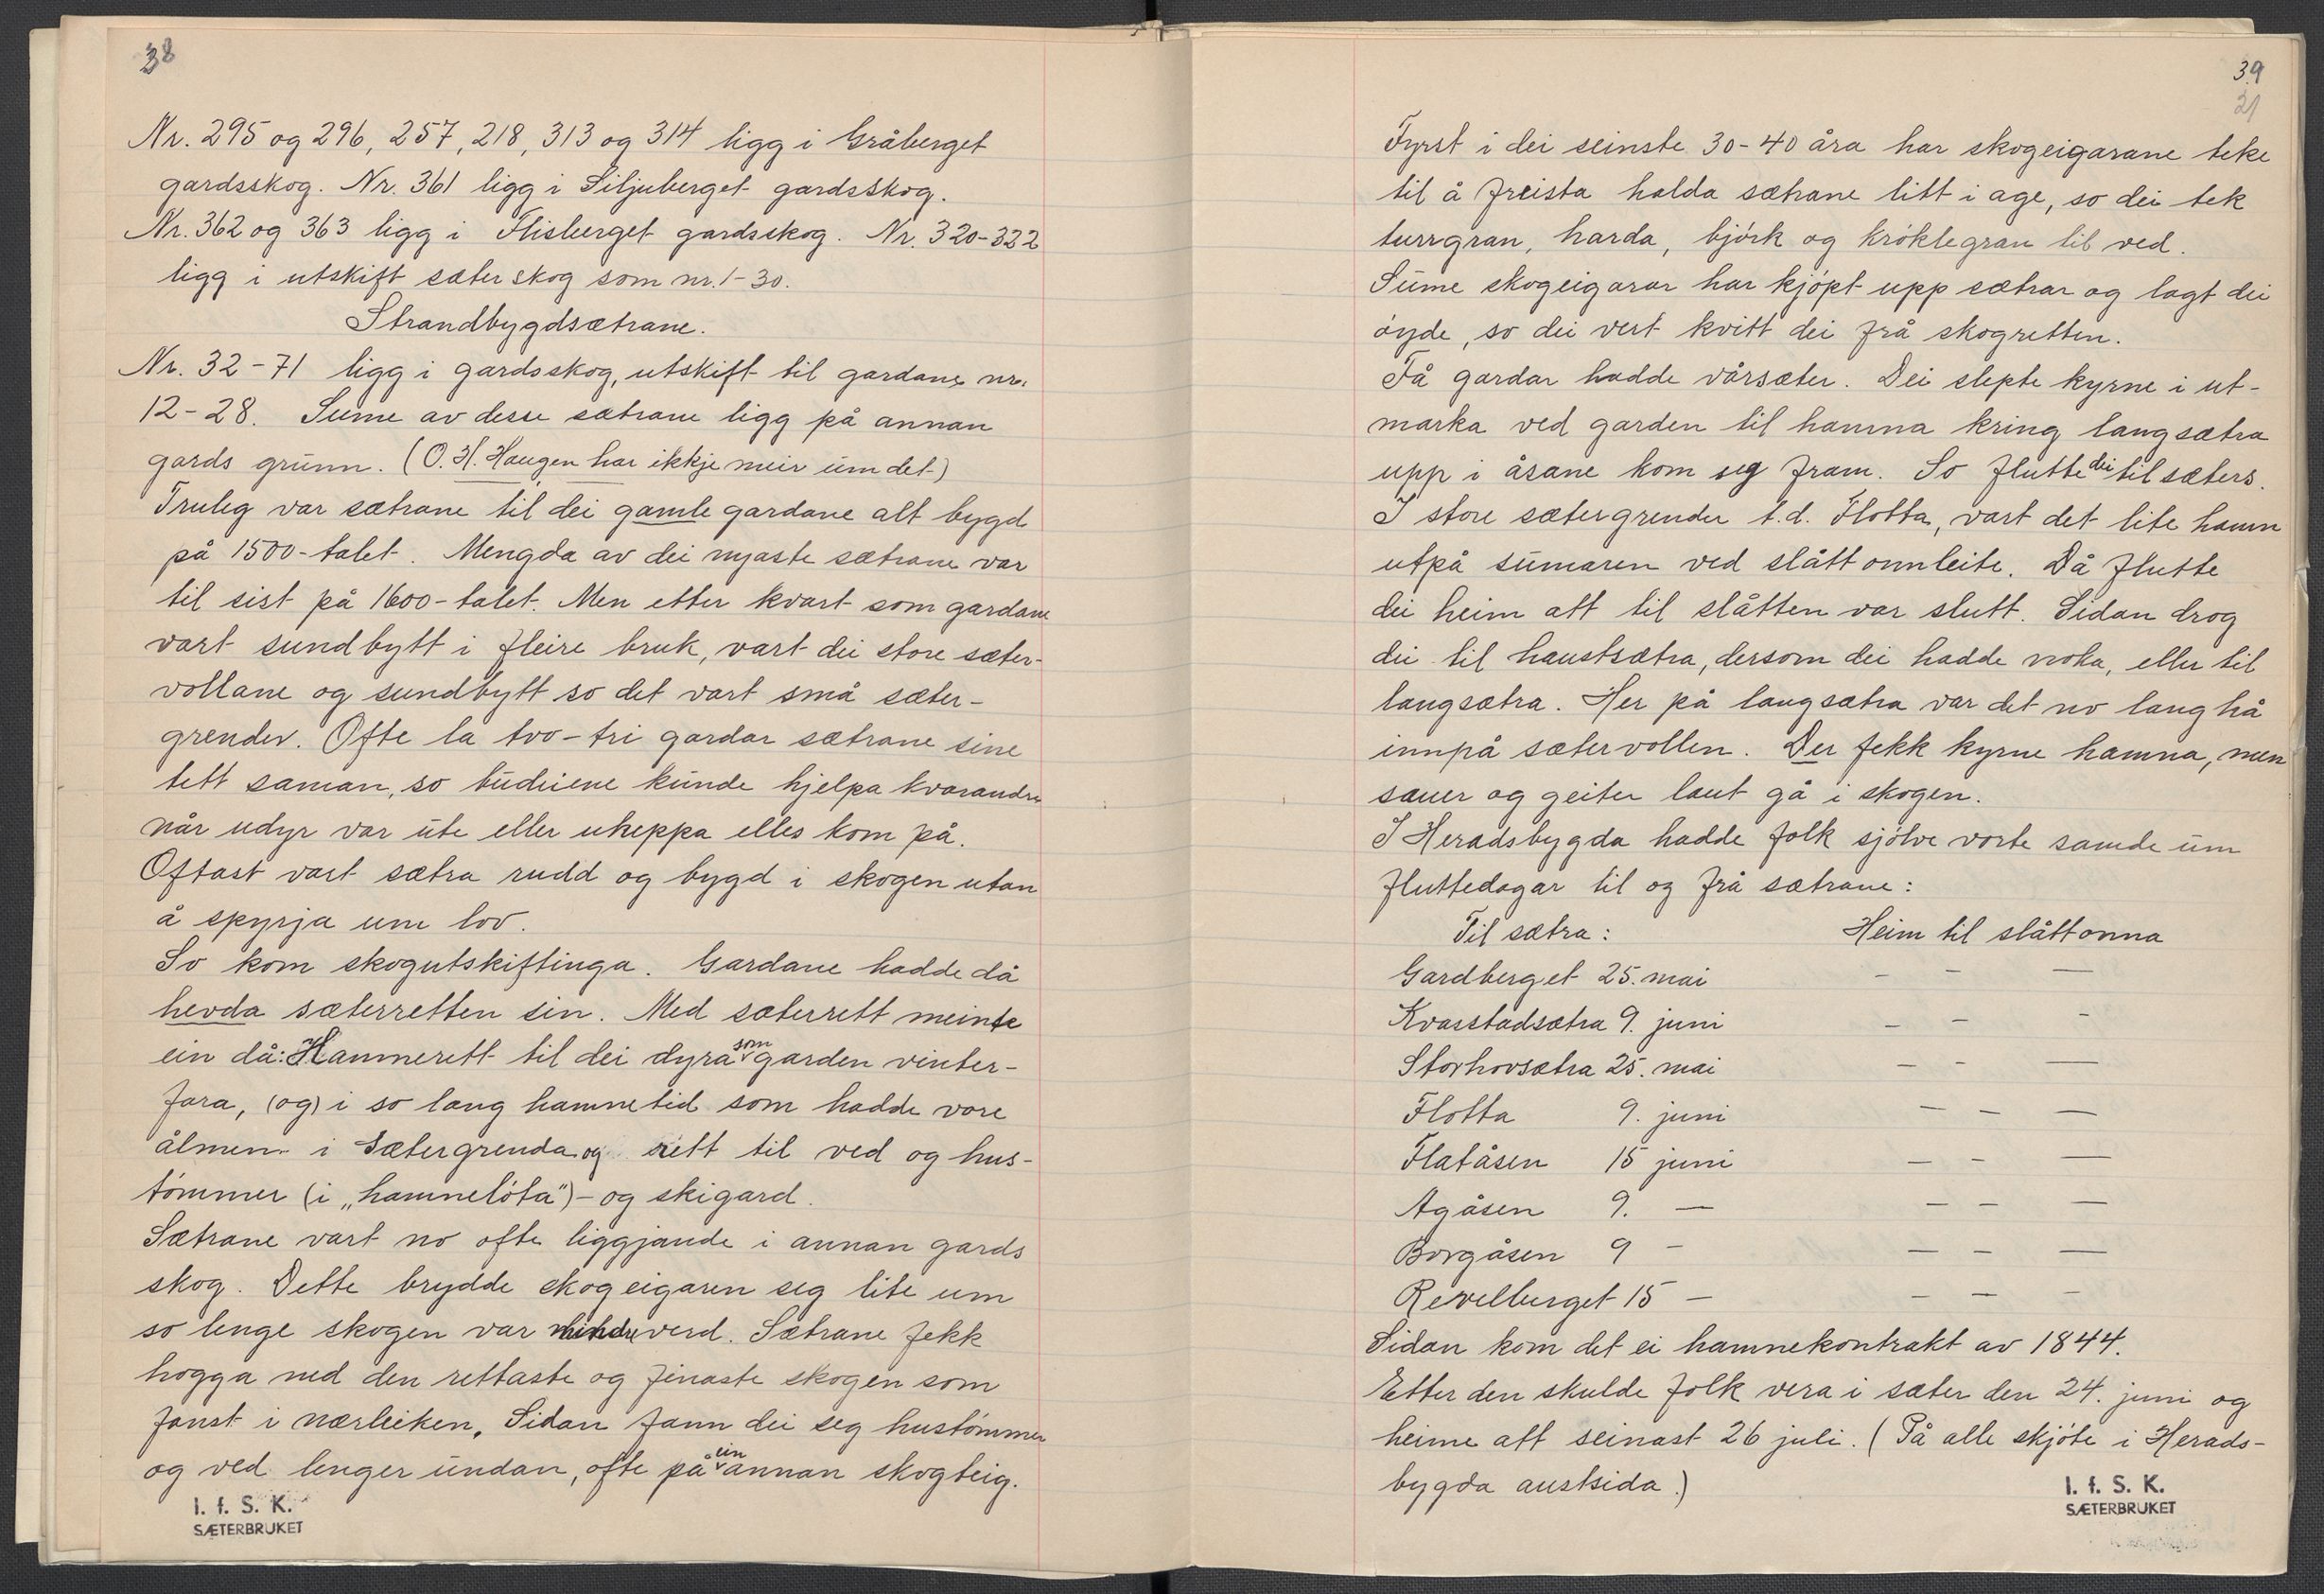 38
Nr. 295 og 296, 257, 218, 313 og 314 ligg i Gråberget
gardsskog. Nr. 361 ligg i Siljuberget gardsskog.
Nr. 362 og 363 ligg i Flisberget gardsskog. Nr. 320-322
ligg i utskift sæterskog som nr. 1-30.
Strandbygdsætrane.
Nr. 32-71 ligg i gardsskog, utskift til gardane nr.
12-28. Sume av desse sætrane ligg på annan
gards grunn. (O. H. Haugen har ikkje meir um det)
Truleg var sætrane til dei gamle gardane alt bygd
på 1500-talet. Mengda av dei nyaste sætrane var
til sist på 1600-talet. Men etter kvart som gardane
vart sundbytt i fleire bruk, vart dei store sæter-
vollane og sundbytt so det vart små sæter-
grender. Ofte la tvo-tri gardar sætrane sine
tett saman, so budeiene kunde hjelpa kvarandre
når udyr var ute eller uheppa elles kom på.
Oftast vart sætra rudd og bygd i skogen utan
å spyrja um lov.
So kom skogutskiftinga. Gardane hadde då
hevda sæterretten sin. Med sæterrett meinte
ein då: Hamnerett til dei dyra som garden vinter-
fora, (og) i so lang hamnetid som hadde vore
ålmen i sætergrenda og rett til ved og hus-
tømmer (i „hamneløta") - og skigard.
Sætrane vart no ofte liggjande i annan gards
skog. Dette brydde skogeigaren seg lite um
so lenge skogen var mindre verd. Sætrane fekk
hogga ned den rettaste og finaste skogen som
fanst i nærleiken. Sidan fann dei seg hustømmer
og ved lenger undan, ofte på ein annan skogteig.
I. f. S. K.
SÆTERBRUKET
39
21
Fyrst i dei seinste 30-40 åra har skogeigarane teke
til å freista halda sætrane litt i age, so dei tek
turrgran, harda, bjørk og krøklegran til ved.
Sume skogeigarar har kjøpt upp sætrar og lagt dei
øyde, so dei vert kvitt dei frå skogretten.
Få gardar hadde vårsæter. Dei slepte kyrne i ut-
marka ved garden til hamna kring langsætra
upp i åsane kom seg fram. So flutte dei til sæters.
I store sætergrender t.d. Flotta, vart det lite hamn
utpå sumaren ved slåttonnleite. Då flutte
dei heim att til slåtten var slutt. Sidan drog
dei til haustsætra, dersom dei hadde noka, eller til
langsætra. Her på langsætra var det no lang hå
innpå sætervollen. Der fekk kyrne hamna, men
sauer og geiter laut gå i skogen.
I Heradsbygda hadde folk sjølve vorte samde um
fluttedagar til og frå sætrane:
Til sætra: Heim til slåttonna
Gardberget 25. mai - - -
Kvasstadsætra 9. juni - - -
Storhovsætra 25. mai - - -
Flotta 9. juni - - -
Flatåsen 15 juni - - -
Agåsen 9. - - - -
Borgåsen 9 - - - -
Revelberget 15 - - - -
Sidan kom det ei hamnekontrakt av 1844.
Etter den skulde folk vera i sæter den 24. juni og
heime att seinast 26 juli. (På alle skjøte i Herads-
bygda austsida.)
I. f. S. K.
SÆTERBRUKET